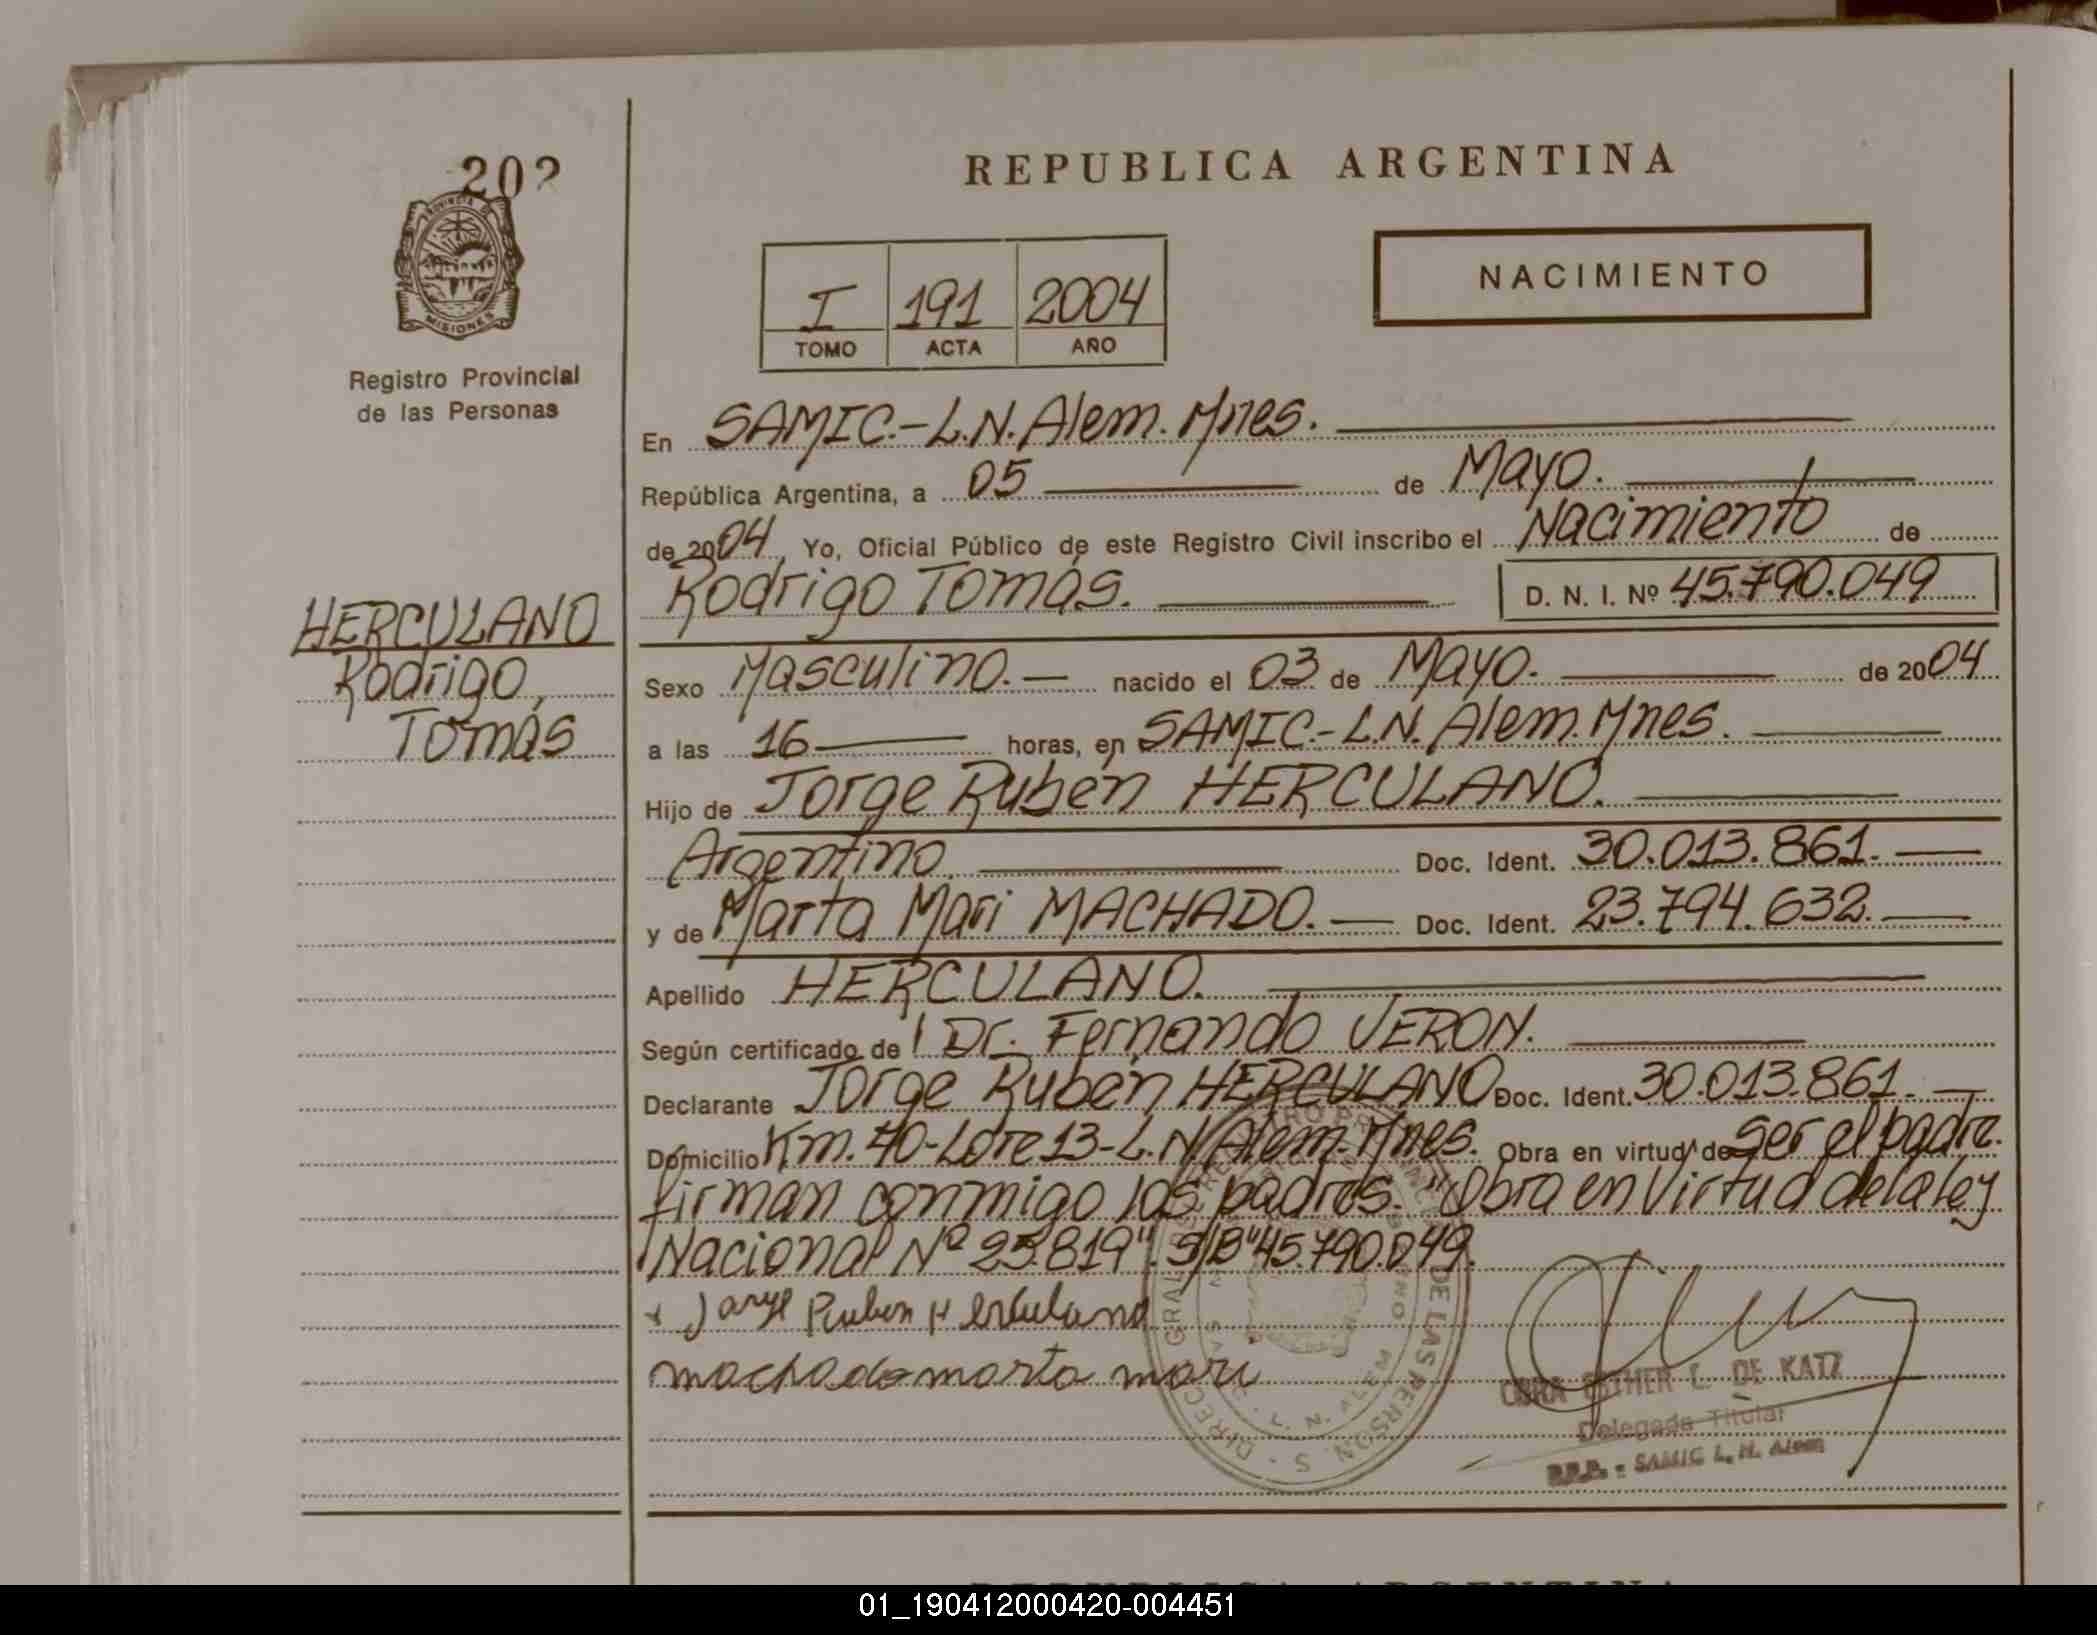 202
PROVINCIA DE
MISIONES
Registro Provincial
de las Personas
HERCULANO
Rodrigo,
Tomás
REPUBLICA ARGENTINA
I 191 2004
TOMO ACTA AÑO
NACIMIENTO
En SAMIC.-L.N.Alem.Mnes.
República Argentina, a 05 de Mayo.
de 2004, Yo, Oficial Público de este Registro Civil inscribo el Nacimiento de
Rodrigo Tomás. D. N. I. Nº 45.790.049
Sexo Masculino.- nacido el 03 de Mayo. de 2004
a las 16 horas, en SAMIC.-L.N.Alem.Mnes.
Hijo de Jorge Ruben HERCULANO.
Argentino. Doc. Ident. 30.013.861.
y de Marta Mari MACHADO.- Doc. Ident. 23.794.632.
Apellido HERCULANO.
Según certificado de Dr. Fernando VERON.
Declarante Jorge Ruben HERCULANO Doc. Ident. 30.013.861.-
Domicilio Km.40-Lote 13-L.N.Alem.Mnes. Obra en virtud de ser el padre.
firman conmigo los padres. "Obra en Virtud de la ley
Nacional Nº 25.819". S/B"45.790.049.
Jorge Ruben Herculano
machado marta mari
DE LAS PERSONAS
L. N. ALEM
CORA ESTHER L. DE KATZ
Delegada Titular
R.P.P. - SAMIC L. N. Alem
REPUBLICA ARGENTINA
01_190412000420-004451